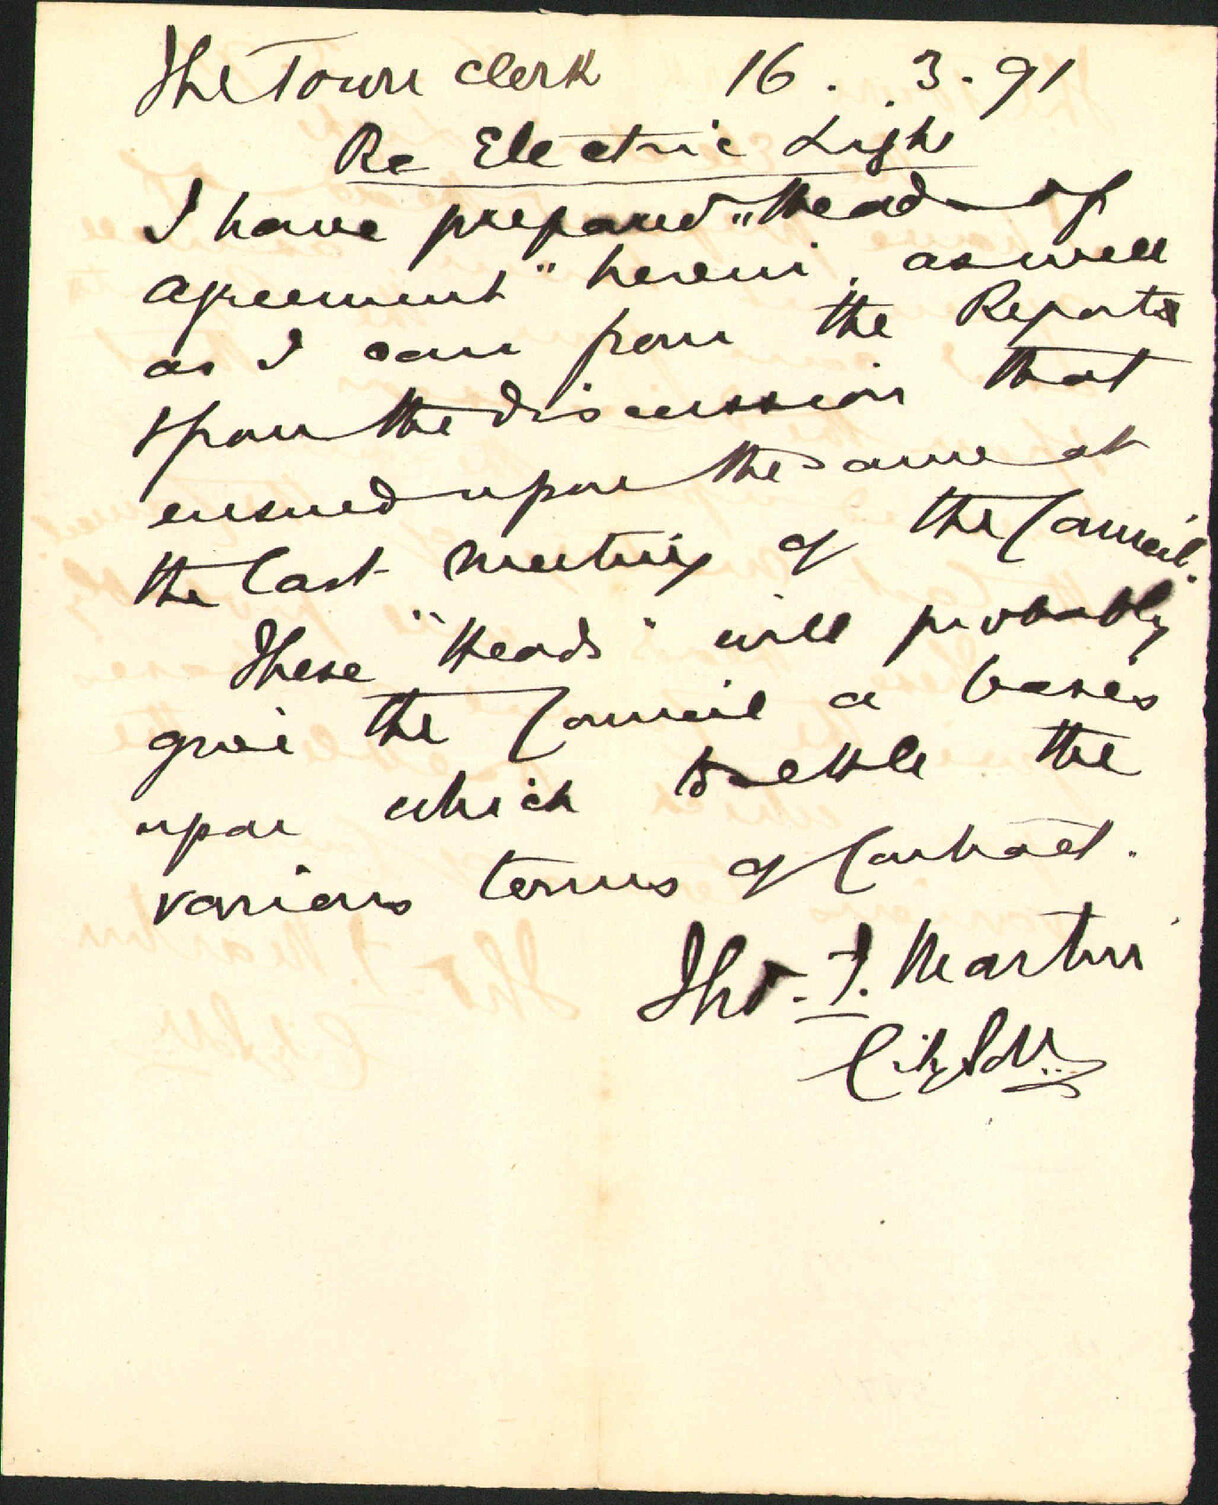 The Town Clerk 16 . 3 . 91
Re Electric Light
I have prepared "Head of
agreement" herein, as well
as I can from the Reports
& from the discussion that
ensued upon the same at
the last meeting of the Council.
These "Heads" will probably
give the Council a basis
upon which to settle the
various terms of Contract.
Tho. F. Martin
City Solr.